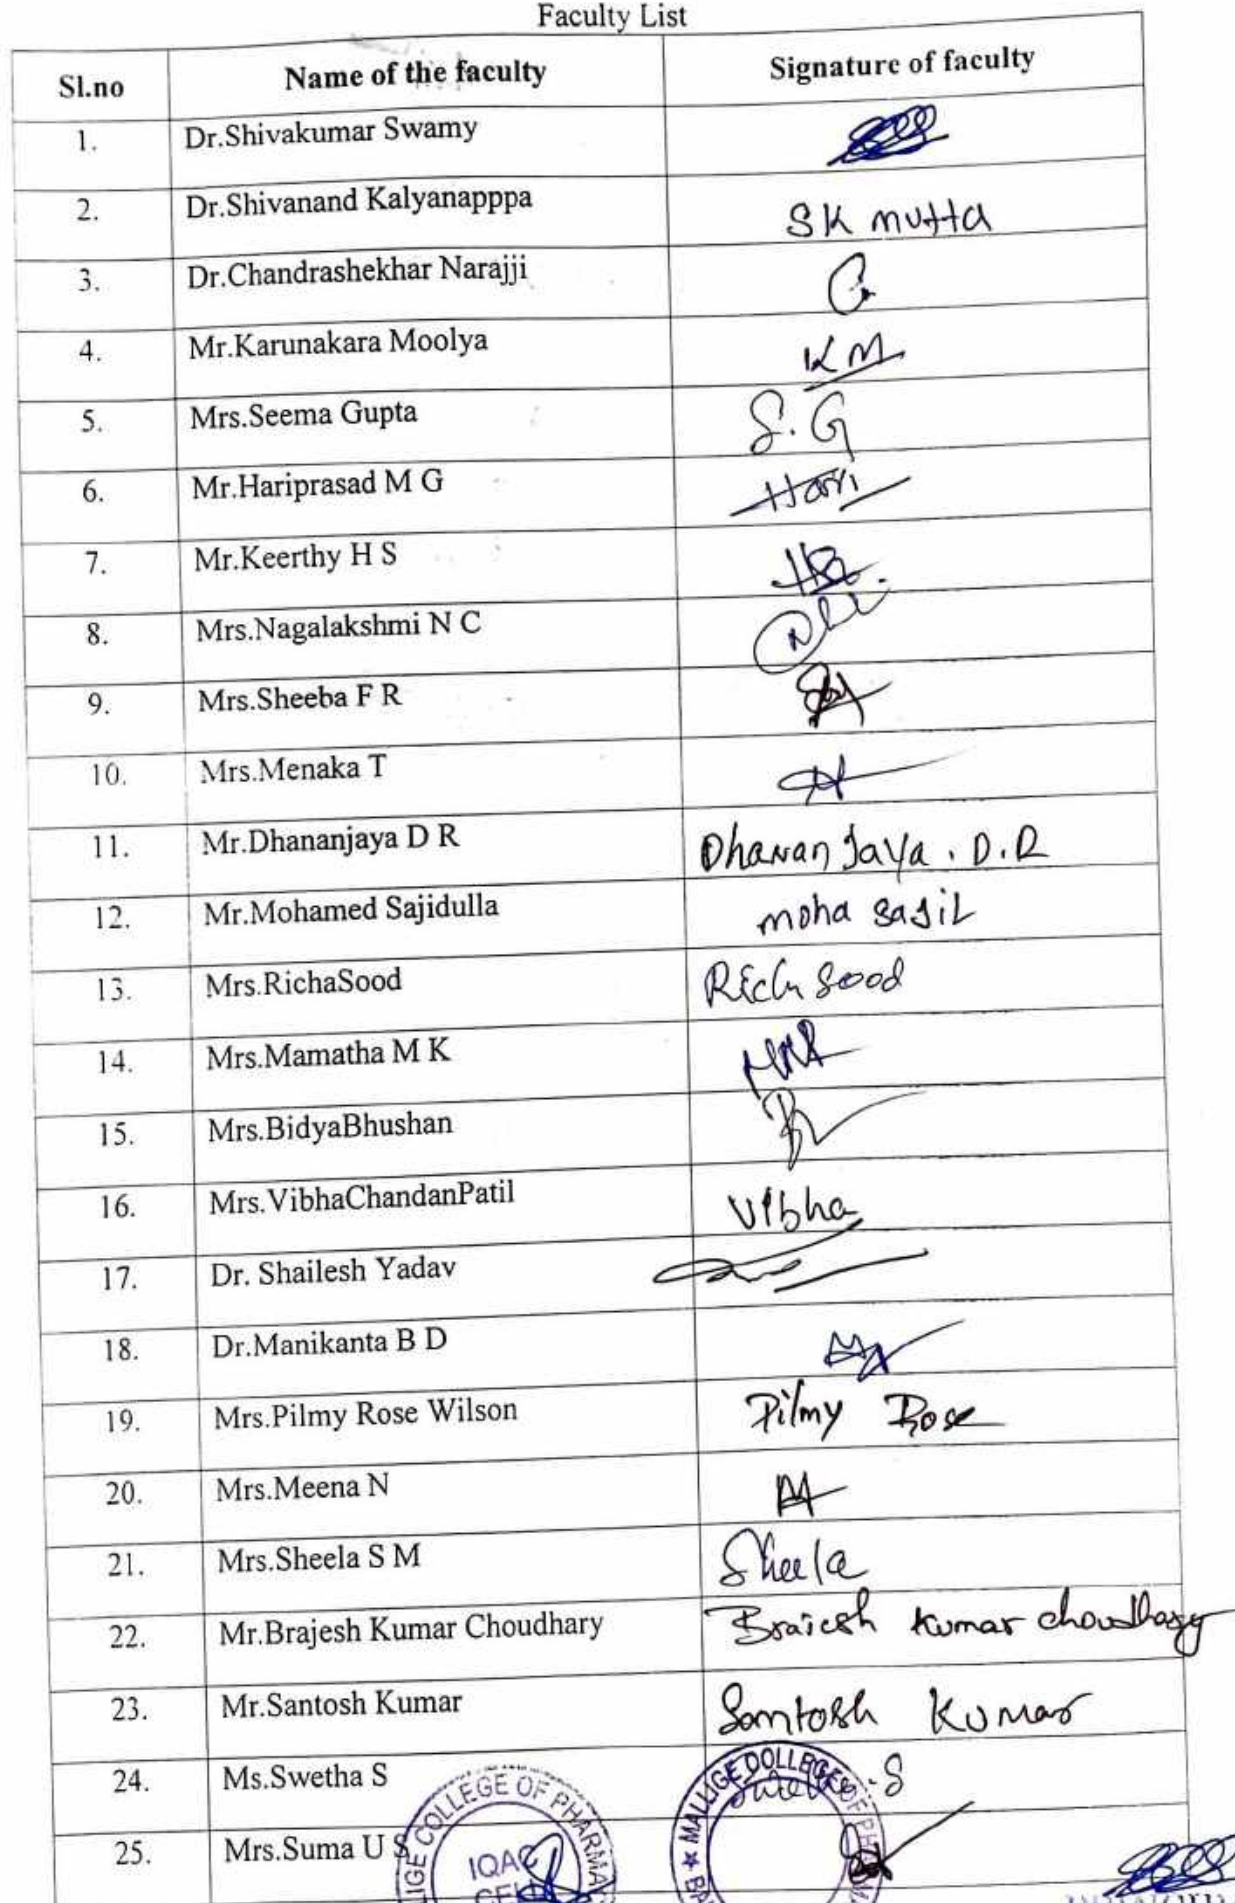 Faculty List
Sl.no Name of the faculty Signature of faculty
1. Dr.Shivakumar Swamy
2. Dr.Shivanand Kalyanapppa SK mutta
3. Dr.Chandrashekhar Narajji
4. Mr.Karunakara Moolya KM
5. Mrs.Seema Gupta S.G
6. Mr.Hariprasad M G Hari
7. Mr.Keerthy H S
8. Mrs.Nagalakshmi N C
9. Mrs.Sheeba F R
10. Mrs.Menaka T
11. Mr.Dhananjaya D R Dhananjaya. D.R
12. Mr.Mohamed Sajidulla moha sajil
13. Mrs.RichaSood Rich Sood
14. Mrs.Mamatha M K
15. Mrs.BidyaBhushan
16. Mrs.VibhaChandanPatil Vibha
17. Dr. Shailesh Yadav
18. Dr.Manikanta B D
19. Mrs.Pilmy Rose Wilson Pilmy Rose
20. Mrs.Meena N
21. Mrs.Sheela S M Sheela
22. Mr.Brajesh Kumar Choudhary Brajesh Kumar choudhary
23. Mr.Santosh Kumar Santosh Kumar
24. Ms.Swetha S
25. Mrs.Suma U S
COLLEGE OF PHARMA
IQAC
CELL
MALLIGE COLLEGE OF